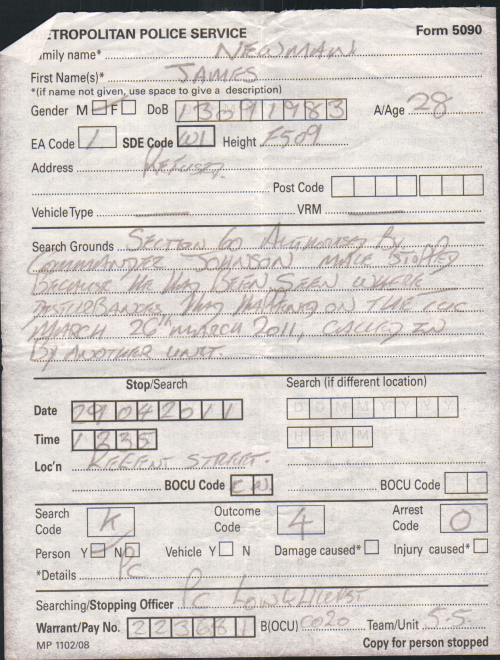 METROPOLITAN POLICE SERVICE Form 5090
Family name* NEWMAN
First Name(s)* JAMES
*(if name not given, use space to give a description)
Gender M F DoB 13091983 A/Age 28
EA Code 1 SDE Code W1 Height F509
Address REFUSED.
Post Code
Vehicle Type VRM
Search Grounds SECTION 60 AUTHORISED BY
COMMANDER JOHNSON MALE STOPPED
BECAUSE HE HAD BEEN SEEN WHERE
DISTURBANCES HAD HAPPENED ON THE TUC
MARCH 26TH MARCH 2011, CALLED IN
BY ANOTHER UNIT.
Stop/Search Search (if different location)
Date 29042011 DDMMYYYY
Time 1335 HHMM
Loc'n REGENT STREET.
BOCU Code CW BOCU Code
Search Code K Outcome Code 4 Arrest Code O
Person Y N Vehicle Y N Damage caused* Injury caused*
*Details PC
Searching/Stopping Officer PC LONGHURST
Warrant/Pay No. 223681 B(OCU) CO20 Team/Unit 5-5
MP 1102/08 Copy for person stopped